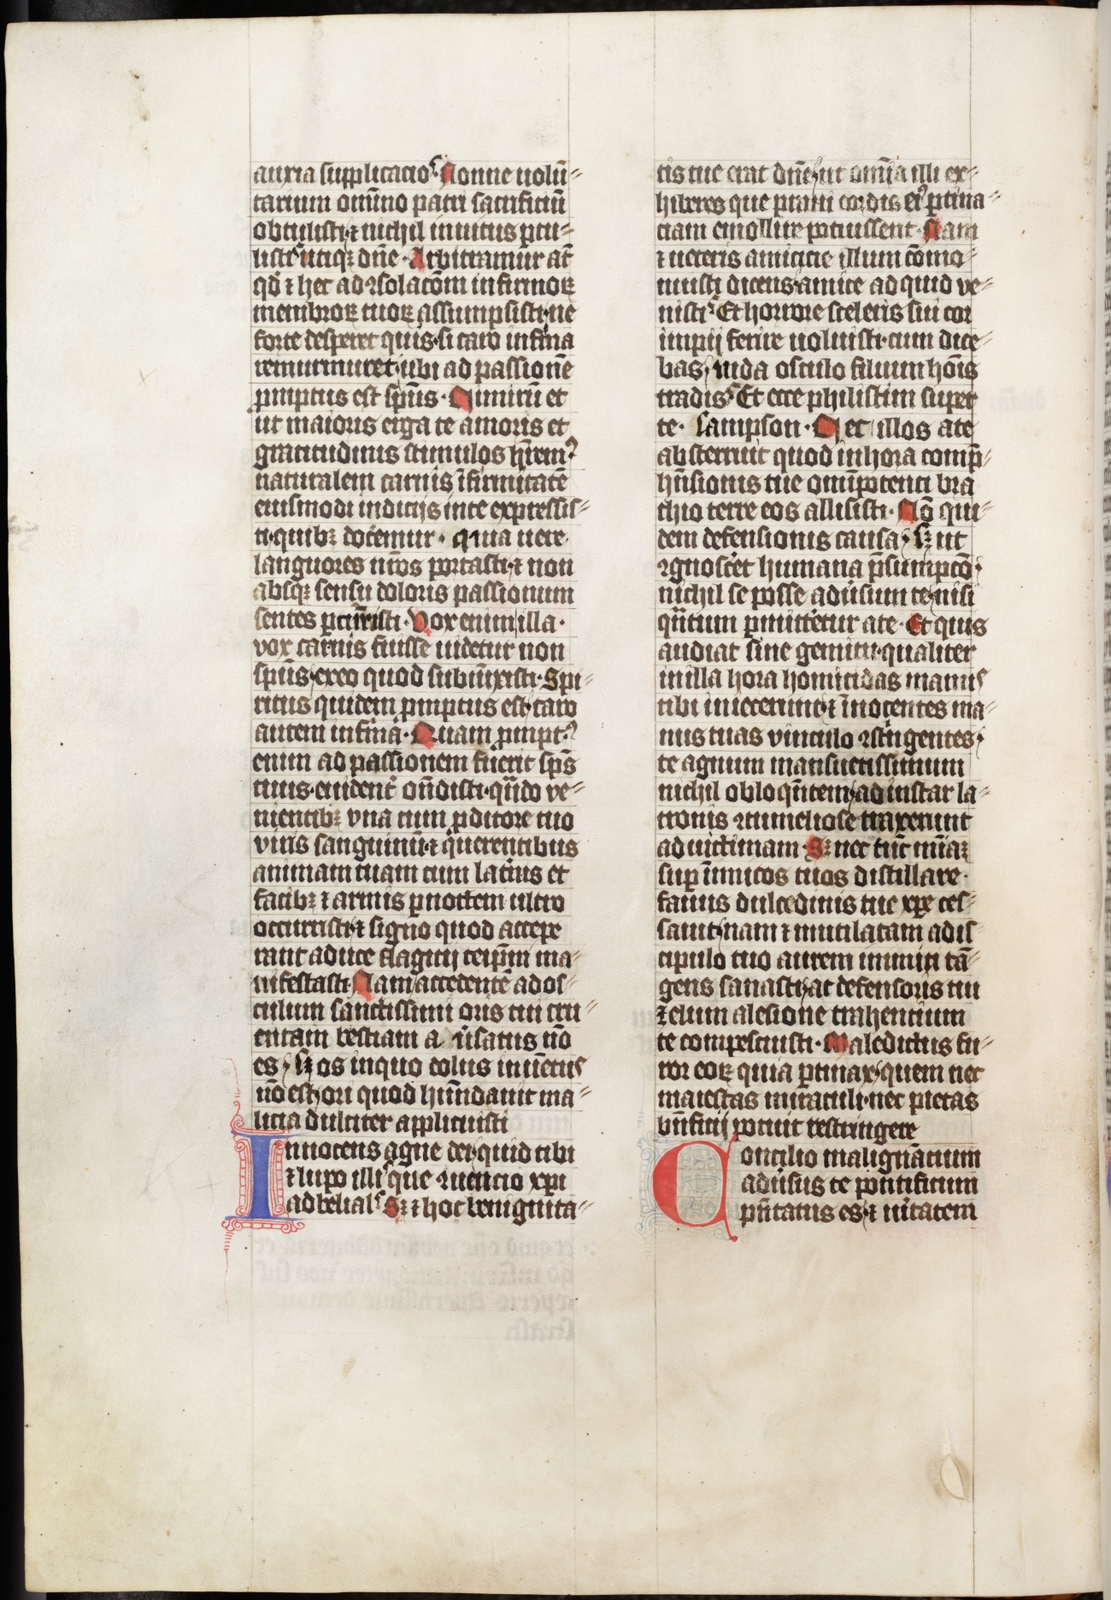 auxia supplicacio Nonne uolū-
tarium omīno patri sacrificiū
obtulisti ⁊ nichil inuitus ptu-
listi utiqꝫ dn̄e · Arbitramur at̄
qđ ⁊ hec ad ꝯsolacōm infirmoꝝ
membroꝝ tuoꝝ assumpsisti ne
forte desperet quis si caro infirma
remurmuret · ubi ad passionē
ꝓmptus est spūs · Nimirū et
ut maioris erga te amoris et
gratitudinis stimulos hr̄em⁹
naturalem carnis īfirmitatē
eiusmodi indicijs in te expressis-
ti quibꝫ docemur · qꝛ uere
languores nr̄os portasti ⁊ non
absqꝫ sensu doloris passionum
sentes ꝑtransisti · Vox enim illa ·
vox carnis fuisse uidetur non
spūs · ex eo quod subiūxisti · Spi-
ritus quidem ꝓmptus est caro
autem infirma · Quam ꝓmpt⁹
enim ad passionem fuerit spūs
tuus euident̄ on̄disti · qn̄do ve-
nientibꝫ vna cum ꝓditore tuo
viris sanguinū ⁊ querentibus
animam tuam cum lat̄nis et
facibꝫ ⁊ armis ꝑ noctem ultro
occurristi ⁊ signo quod accepe
rant a duce flagicij teip̄m ma
nifestasti · Nam accedentē ad os-
culum sanctissimi oris tui cru-
entam bestiam auersatus nō
es · sꝫ os in quo dolus inuētus
nō est · ori quod habundauit ma-
licia dulciter applicuisti
Innocens agne dei quid tibi
⁊ lupo illi que ꝯuencio xp̄i
ad belial Sꝫ ⁊ hoc benignita-
tis tue erat dn̄e · ut omīa illi ex-
hiberes que praui cordis ei⁹ ꝑtina-
ciam emollire potuissent · Nam
⁊ ueteris amicicie illum cōmo-
nuisti dicens amice ad quid ve-
nisti Et horrore sceleris sui cor
impij ferire uoluisti · cum dice-
bas · iuda osculo filium hois
tradis Et ecce philistim super
te · sampson · Nec illos a te
absterruit quod in hora comp̄-
hn̄sionis tue omīpotenti bra
chio terre eos allisisti · Nō qui-
dem defensionis causa · sꝫ ut
ꝯgnoscet humana p̄sumpcō ·
nichil se posse aduersum te nisi
qn̄tum ꝑmittetur a te · Et quis
audiat sine gemitu · qualiter
in illa hora homicidas manus
tibi iniecerunt ⁊ īnocentes ma-
nus tuas vinculo ꝯstringentes ·
te agnum mansuetissimum
nichil obloquentem · ad instar la-
tronis ꝯtumeliose traxerunt
ad uictimam · Sꝫ nec tūc mīaꝝ
sup inimicos tuos distillare ·
fauus dulcedinis tue xp̄e ces-
sauit · nam ⁊ mutilatam a dis
cipulo tuo aurem inimici tā-
gens sanasti · at defensoris tui
zelum a lesione trahentium
te compescuisti · Maledictus fu-
ror eoꝝ quia ꝑtinax · quem nec
maiestas miraculi · nec pietas
bn̄ficij potuit restringere
Concilio malignācium
aduersus te pontificum
p̄ntatus es · ⁊ ueritatem